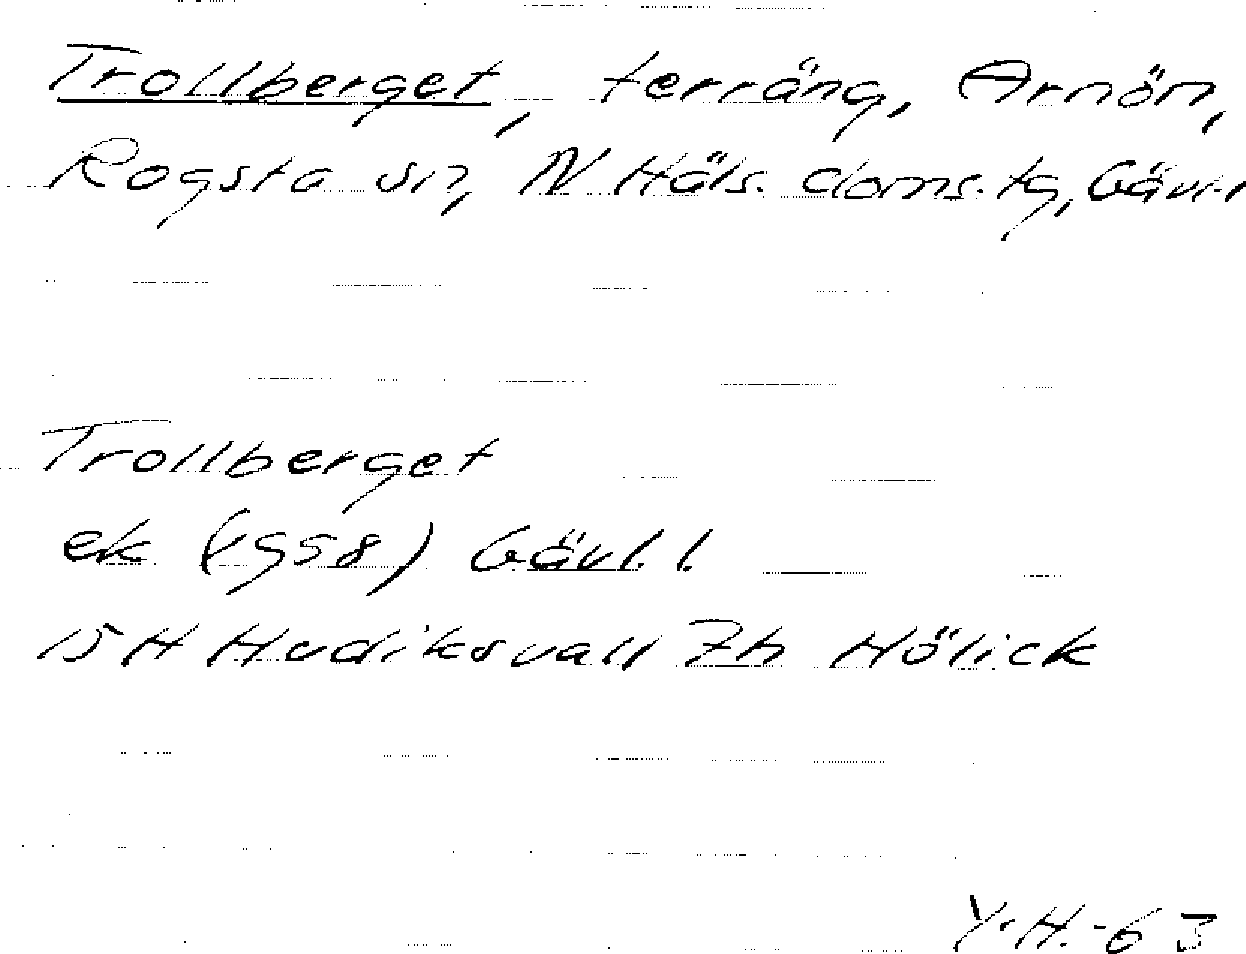 Trollberget, terräng, Arnön,
Rogsta sn, N Häls. doms. tg, Gävl. l
Trollberget
ek (1958) Gävl. l.
15 H Hudiksvall 7h Hölick
Y. H. -63